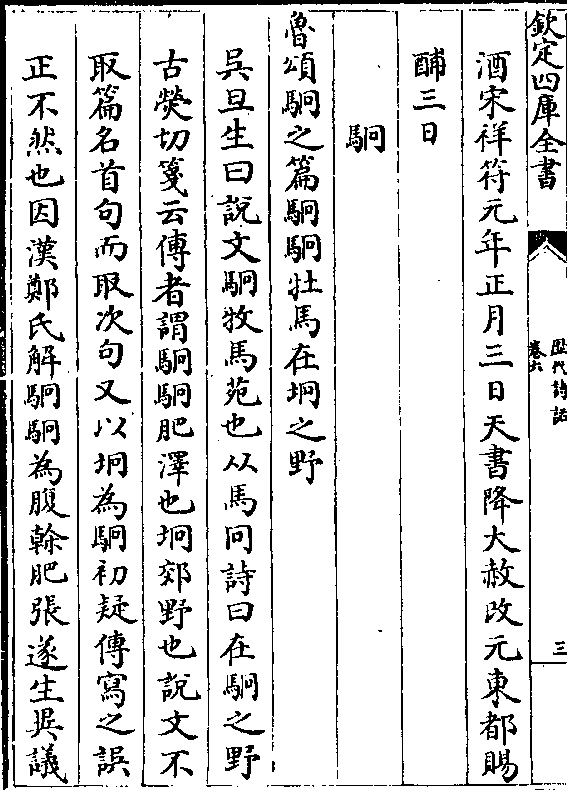 欽定四庫全書
歴代詩話
卷六
三
酒宋祥符元年正月三日天書降大赦改元東都賜
酺三日
駉
魯頌駉之篇駉駉牡馬在坰之野
吳旦生曰說文駉牧馬苑也从馬冋詩曰在駉之野
古熒切箋云傳者謂駉駉肥澤也坰郊野也說文不
取篇名首句而取次句又以坰為駉初疑傳寫之誤
正不然也因漢鄭氏解駉駉為腹榦肥張遂生異議